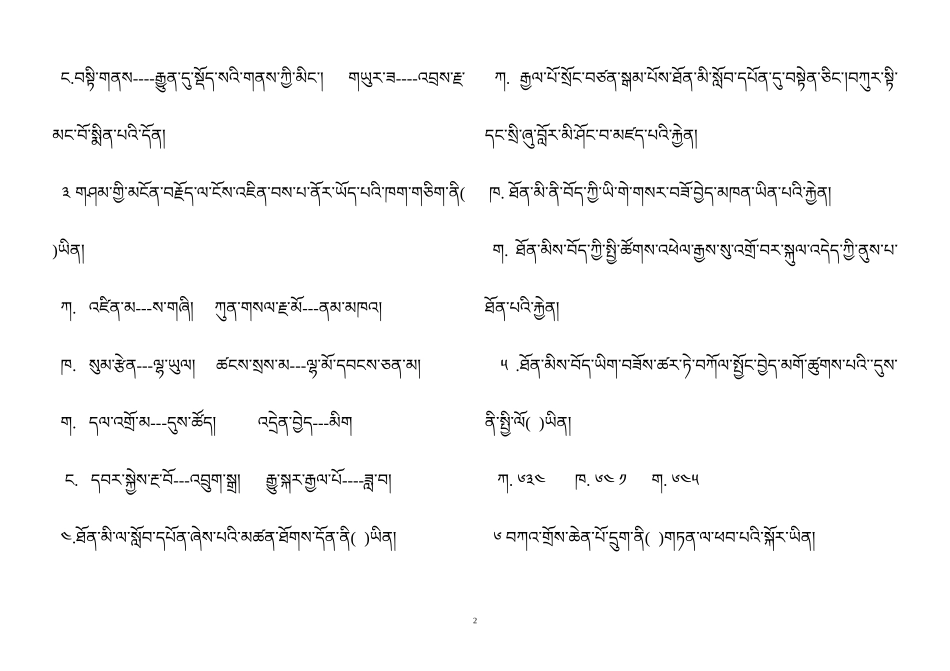 ང.བསྟི་གནས----རྒྱུན་དུ་སྡོད་སའི་གནས་ཀྱི་མིང་། གཡུར་ཟ----འབྲས་རྫ་
མང་པོ་སྨིན་པའི་དོན།
༣ གཤམ་གྱི་མངོན་བརྗོད་ལ་ངོས་འཛིན་བས་པ་ནོར་ཡོད་པའི་ཁག་གཅིག་ནི(
)ཡིན།
ཀ. འཛིན་མ---ས་གཞི། ཀུན་གསལ་རྫ་མོ---ནམ་མཁའ།
ཁ. སུམ་རྩེན---ལྷ་ཡུལ། ཚངས་སྲས་མ---ལྷ་མོ་དབངས་ཅན་མ།
ག. དལ་འགྲོ་མ---དུས་ཚོད། འདྲེན་བྱེད---མིག
ང. དབར་སྐྱེས་རྔ་བོ---འབྲུག་སྒྲ། རྒྱུ་སྐར་རྒྱལ་པོ----ཟླ་བ།
༤.ཐོན་མི་ལ་སློབ་དཔོན་ཞེས་པའི་མཚན་ཐོགས་དོན་ནི( )ཡིན།
ཀ. རྒྱལ་པོ་སྲོང་བཙན་སྒམ་པོས་ཐོན་མི་སློབ་དཔོན་དུ་བསྟེན་ཅིང་།བཀུར་སྟི་
དང་སྲི་ཞུ་བློར་མི་ཤོང་བ་མཛད་པའི་རྐྱེན།
ཁ. ཐོན་མི་ནི་བོད་ཀྱི་ཡི་གེ་གསར་བཟོ་བྱེད་མཁན་ཡིན་པའི་རྐྱེན།
ག. ཐོན་མིས་བོད་ཀྱི་སྤྱི་ཚོགས་འཕེལ་རྒྱས་སུ་འགྲོ་བར་སྐུལ་འདེད་ཀྱི་ནུས་པ་
ཐོན་པའི་རྐྱེན།
༥ .ཐོན་མིས་བོད་ཡིག་བཟོས་ཚར་ཏེ་བཀོལ་སྤྱོང་བྱེད་མགོ་ཚུགས་པའི་་དུས་
ནི་སྤྱི་ལོ( )ཡིན།
ཀ. ༦༣༤ ཁ. ༦༤༡ ག. ༦༤༥
༦ བཀའ་གྲོས་ཆེན་པོ་དྲུག་ནི( )གཏན་ལ་ཕབ་པའི་སྐོར་ཡིན།
2